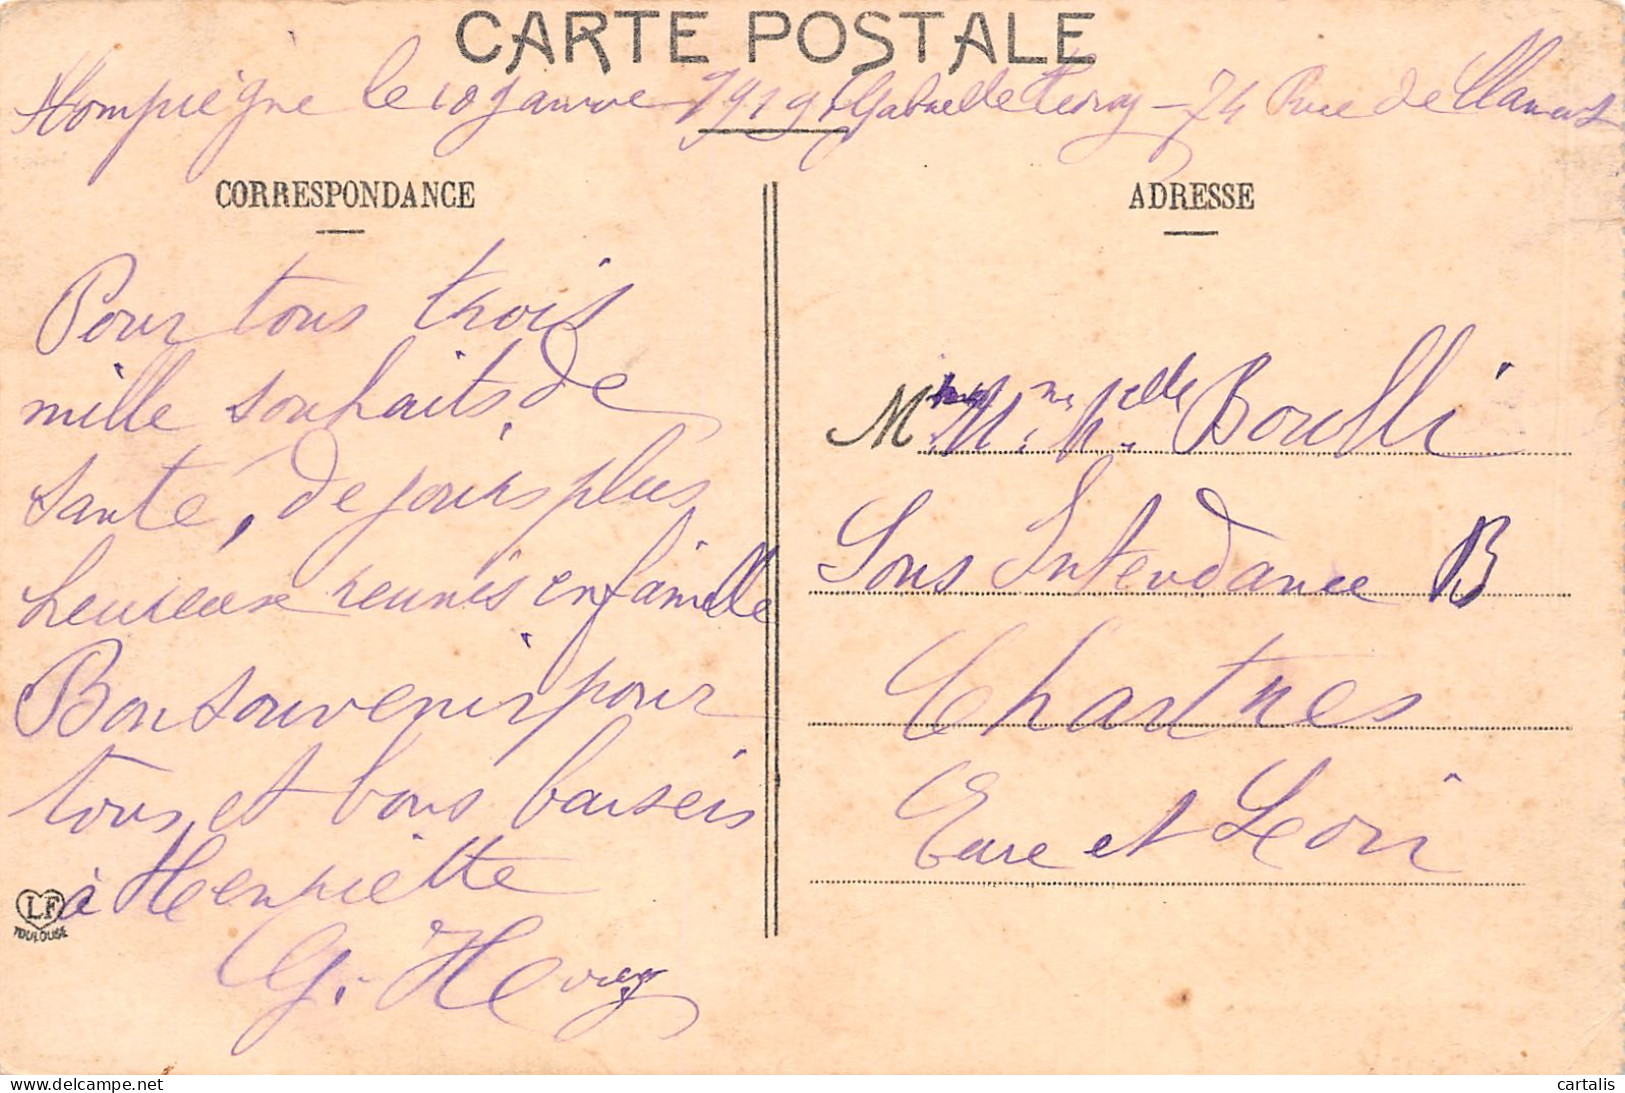 CARTE POSTALE
Compiègne le 10 janvier 1919. Gabrielle Henry - 74 Rue de
CORRESPONDANCE
Pour tous trois
mille souhaits, de
santé, de jours plus
heureux reunis en famille
Bon souvenir pour
tous et bons baisers
à Henriette
G. Henry
LF
TOULOUSE
ADRESSE
M
Sous Intendance B
Chartres
Eure et Loir
www.delcampe.net
cartalis